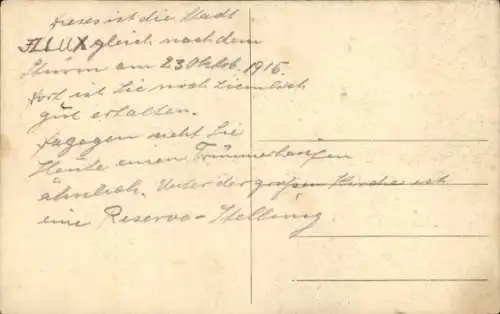 Dieses ist die Stadt
ILLUX gleich nach dem
Sturm am 23 Oktob. 1915.
Dort ist Sie noch ziemlich
gut erhalten.
Dagegen sieht Sie
Heute einen Trümmerhaufen
ähnlich. Unter der großen Kirche ist
eine Reserve-Stellung